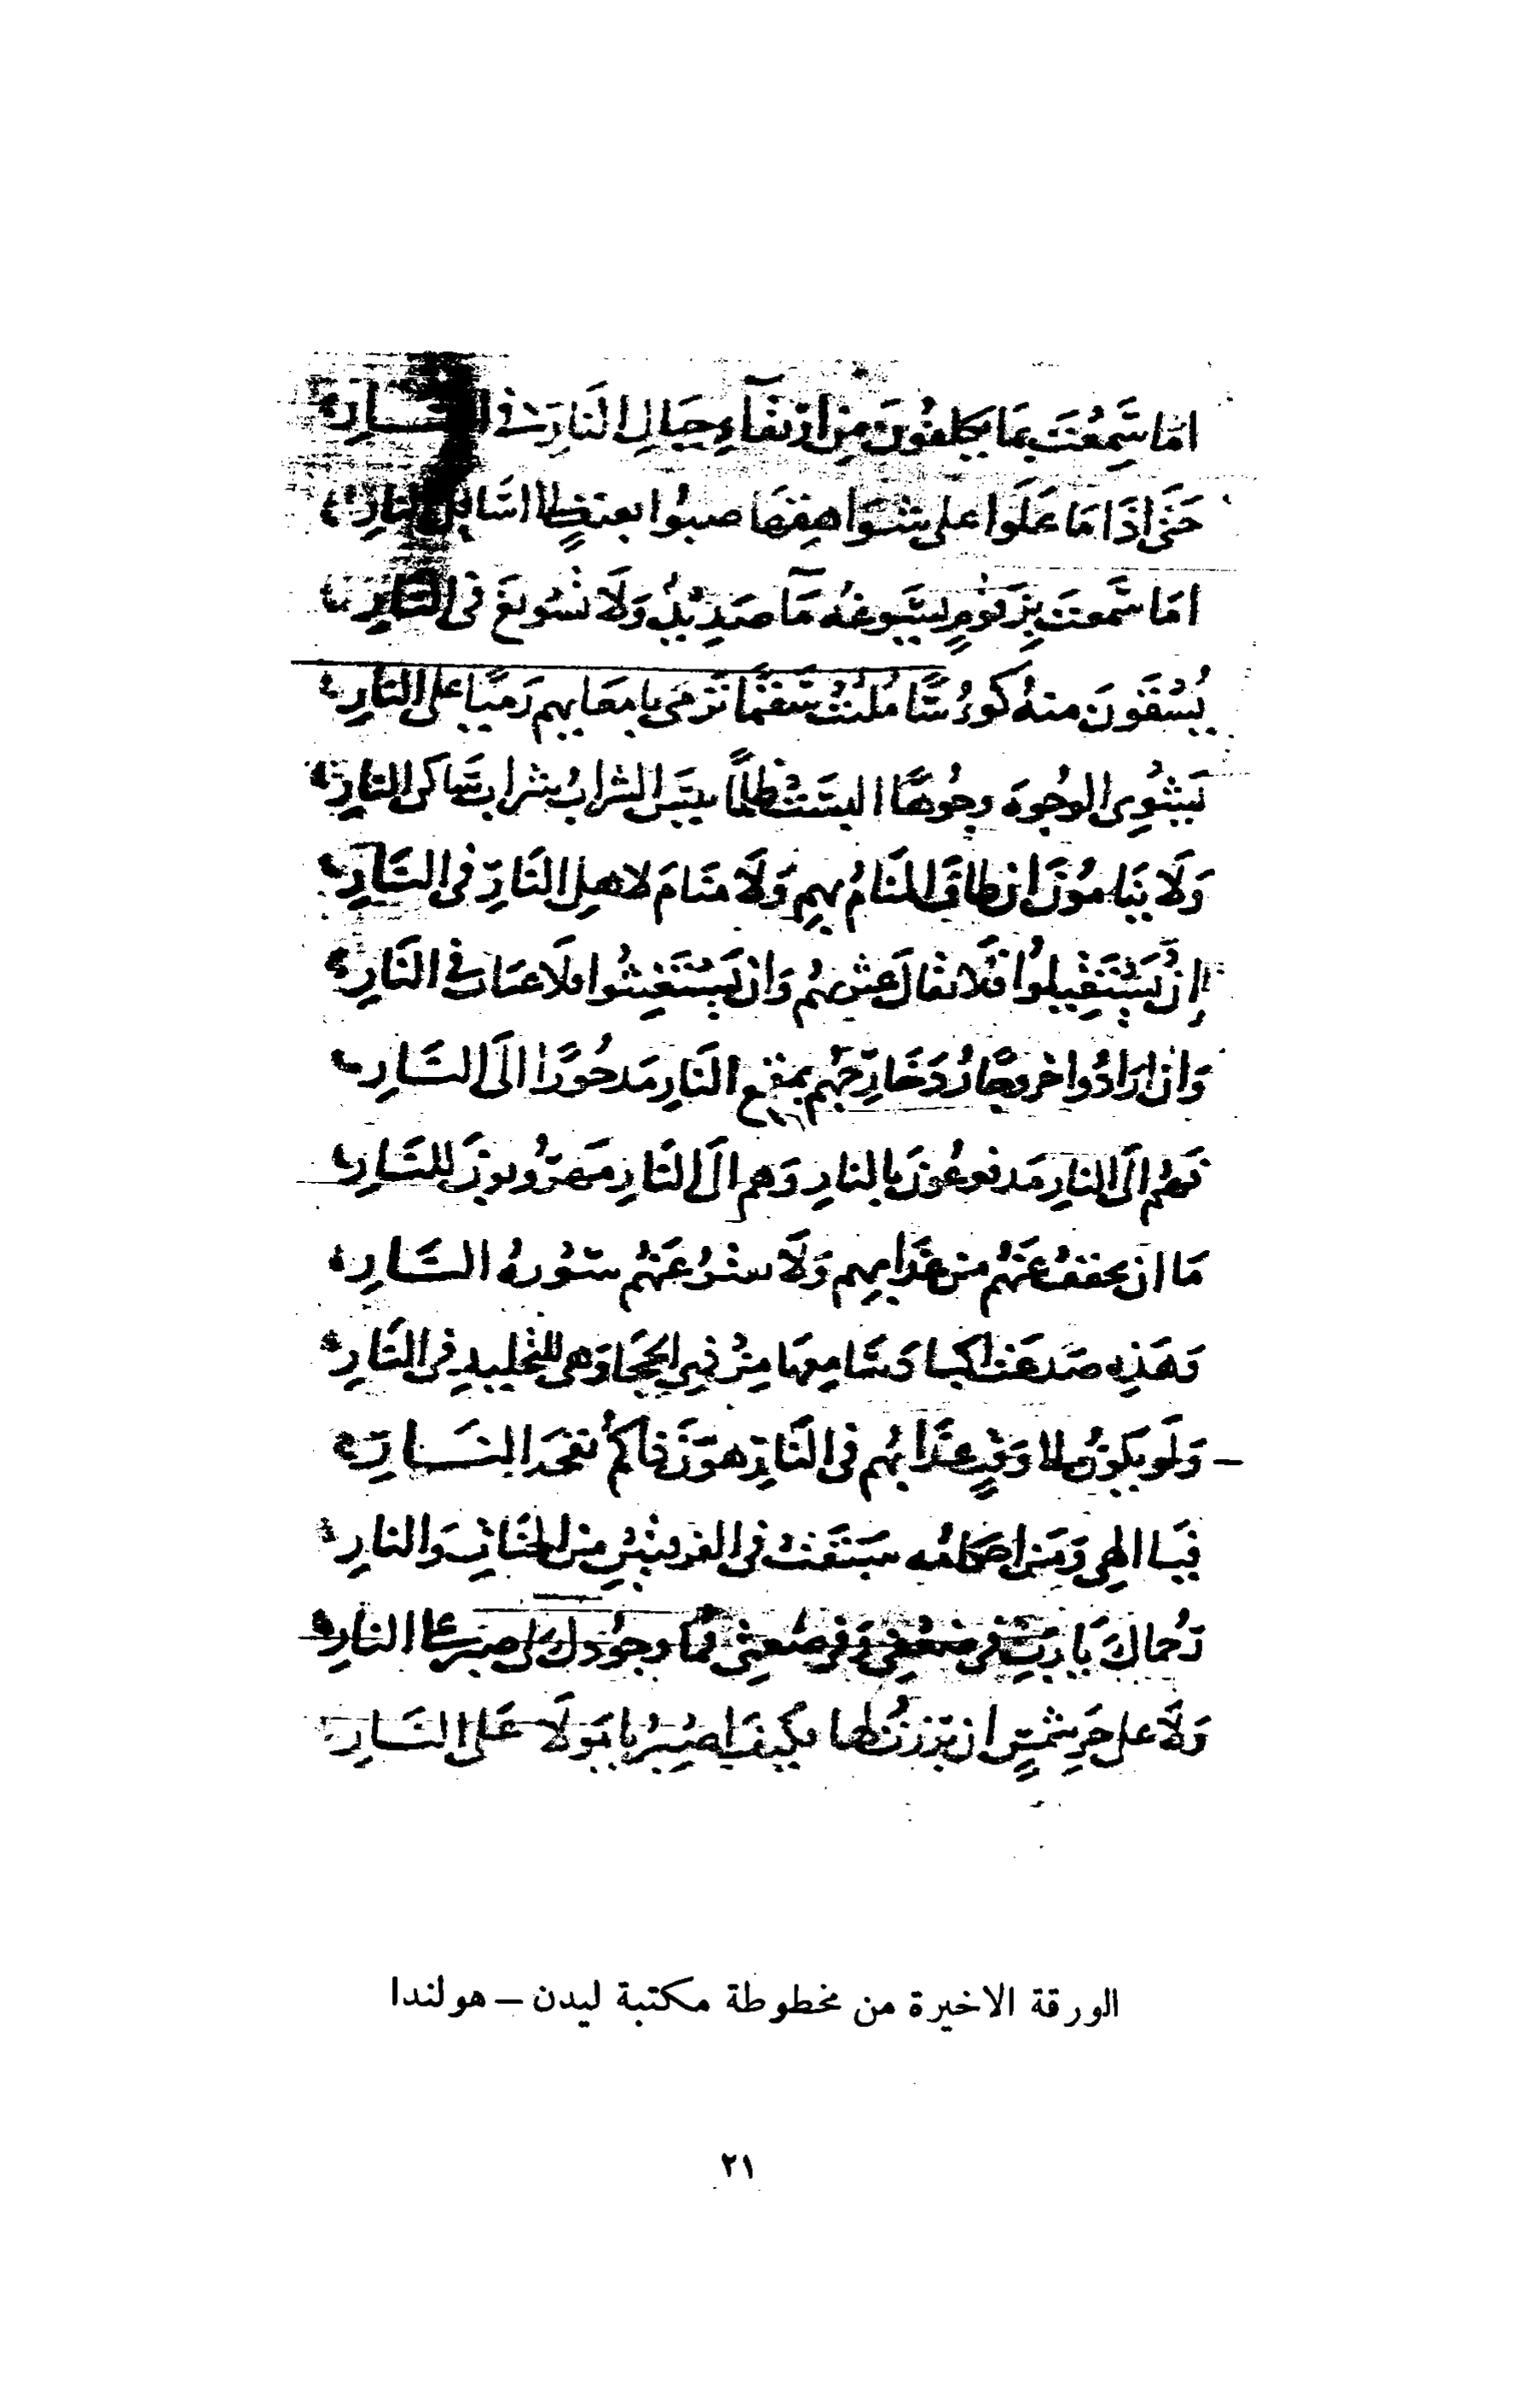 اما سَمِعْتَ بِمَا يُكَلَّفُونَ مِن ارْتقَاءِ جِبَالِ النَارِ فى النَّــارِ
حَتَى اذَا مَا عَلَوا على شَوَاهِقِهَا صبوا بعنفٍ الى اسَافل النارِ
امَا سَمعتَ بِزَقومٍ يُسَوغهُ مَآ صَدِيدٍ وَلَا تَسْوِيغَ فى النارِ
يُسْقَوْنَ منهُ كُوءُسًا مُلئَتْ سَقَمًا تَرْمى بامعَايهم رَميًا على النَارِ
يَشْوِى الوجُوهَ وجُوهًا البسَتْ ظلمًا بيسَ الشرابُ شرابُ سَاكنى النارِ
وَلَا يَنَامُونَ ان طافَ المنَامُ بهم وَلَا منَامَ لاهلِ النَارِ فى النَّــارِ
اِنْ يَسْتَقيلُوا فَلَا تقَال عثرتهُم وَان يَستَغيثُوا فلَا غيَاث فى النَارِ
وَان ارَادُوا خروجًا رُدَ خَارِجُهُم بمقمع النَارِ مَدحُورًا الَى النَّــارِ
فَهُم الَى النارِ مَدفوعُونَ بالنارِ وَهم الَى النَارِ مَهرُوبونَ للنَّــارِ
مَا ان يخففُ عَنْهُم من عَذَابهم وَلَا تفْتُرُ عَنْهُم سَوْرةُ النَّــارِ
وَهَذِه صَدعَت اكبادَ سَامِعهَا مِنْ ذِى الحِجَا وَهى للتخليدِ فى النَارِ
وَلَو يكونُ الى وَقتٍ عذَابُهُم فى النَارِ هوَّنَ ذاكُم نفحَة النَّــارِ
فَيَا الهى وَمَن احكامُه سبَقَتْ فى الفرقتَينِ من الجنَاتِ وَالنارِ
رُحماكَ يَا رَبِّ فى ضعْفى وَفى ضَعَتى فمَا وجُودك لى صبر على النارِ
وَلَا على حَرِ شمْسٍ ان بَرَزتُ لها فكيفَ اصبِرُ يا مَولَاى عَلى النَّــارِ
الورقة الاخيرة من مخطوطة مكتبة ليدن – هولندا
٢١